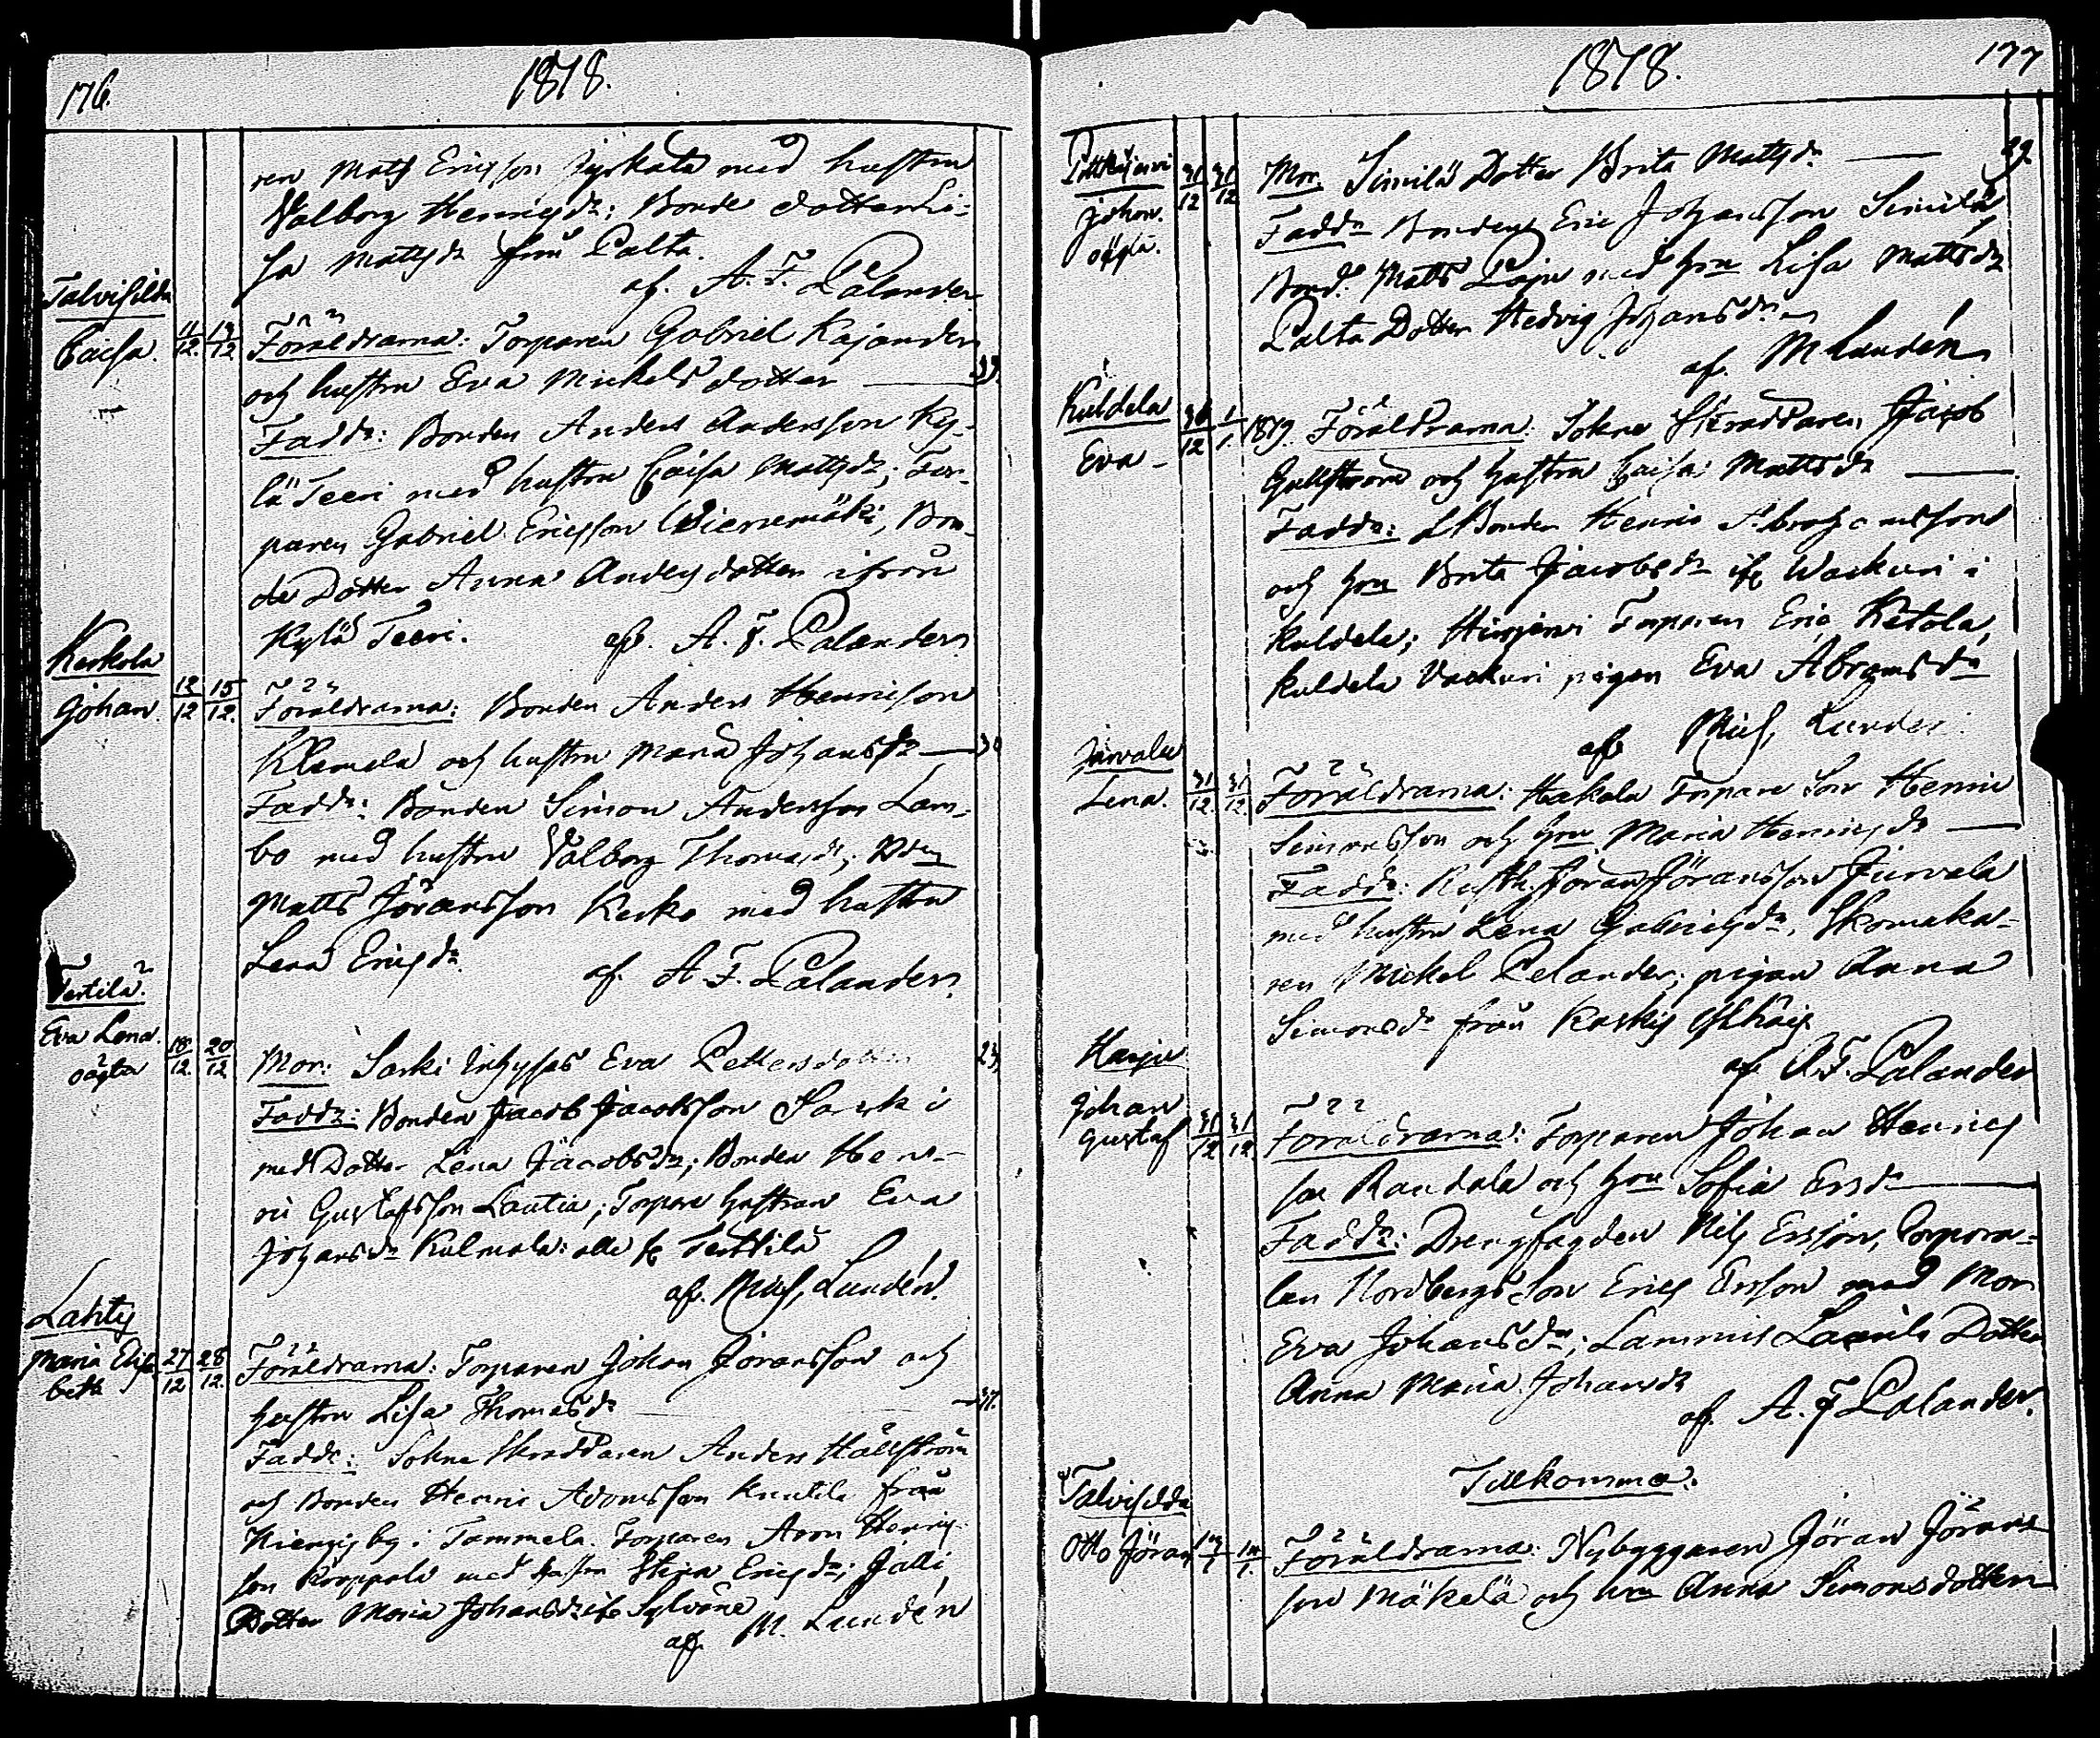 176.
1818.
ren Matts Ericsson Jyrkata med hustru
Valborg Henricsdr; Bonde dotter Li=
sa Mattsdr från Palta.
af. A. F. Palander
Talvisilda
Caisa. 11/12 13/12 Föräldrarna: Torparen Gabriel Kajander
och hustru Eva Mickelsdotter — 39.
Faddr: Bonden Anders Andersson Ky-
lä Teeri med hustru Caisa Mattsdr; Tor-
paren Gabriel Ericsson Wienemäki, Bon-
de Dotter Anna Andersdotter ifrån
Kylä Teeri. af. A. F. Palander
Keskola
Johan. 12/12 15/12. Föräldrarna: Bonden Anders Henricsson
Klemela och hustru Maria Johansdr — 30
Faddr: Bonden Simon Andersson Lam-
bo med hustru Valborg Thomasdr; Bden
Matts Jöransson Kesko med hustru
Lena Ericsdr. af. A. F. Palander.
Terttilä.
Eva Lena.
oägta 18/12. 20/12 Mor: Sarki Inhyses Eva Pettersdotter 23,
Faddr: Bonden Jacob Jacobsson Sarki
med Dotter Lena Jacobsdr; Bonden Hen-
ric Gustafsson Lautia; Torpare hustrun Eva
Johansdr Kulmala: alle fr Terttilä
af. Mich, Lundén.
Lahty
Maria Elisa
beth 27/12 28/12. Föräldrarna: Torparen Johan Jöransson och
hustru Lisa Thomasdr — 37.
Faddr: Sokne Skräddaren Anders Hällström
och Bonden Henric Adamsson Knutila från
by i Tammela. Torparen Aron Henrics-
son Korppola med hustru Stina Ericsdr; Jalli
Dotter Maria Johansdr ifr Sylväne
af. M. Lundén
1818.
177
johan.
oägta. 31/12 31/12 Mor. Simila Dotter Brita Mattsdr — 29.
Faddr Bonden Eric Johansson Simila
Bond. Matts Paju med hru Lisa Mattsdr
Palta Dotter Hedvig Johansdr
af. M Lundén
Kuldela
Eva - 30/12 1/1. 1819. Föräldrarna: Sokne Skräddaren Jacob
Gullström och hustru Caisa Mattsdr —
Faddr: Bonden Henric Abrahamsson
och hru Brita Jacobsdr ifr Wackuri i
Kuldela; Hirvjervi Torparen Eric Ketola,
Kuldela Vackuri pigan Eva Abramsdr
af Mich, Lunden
Juvala
Lena. 31/12. 31/12. Föräldrarna: Hakala Torpare Son Henric
Simonsson och hru Maria Henricsdr —
Faddr: Rusth. Jöran Jöransson Juvala
med hustru Lena Gabrielsdr, Skomaka-
ren Mickel Pelander; pigan Anna
Simonsdr från Koskis
af A. F. Palander
Harju
Johan
Gustaf 31/12 31/12. Föräldrarna: Torparen Johan Henrics
son Randala och hru Sofia Ersdr —
Faddr: Drengfogden Nils Ersson, Corpora-
len Nordbergs Son Erics Ersson med Mor
Eva Johansdr; Lammis Laurila Dotter
Anna Maria Johansdr
af. A. F Palander.
Tillkomma.
Talvisilda
Otto Jöran Föräldrarna: Nybyggaren Jöran Jörans
son Mäkelä och hru Anna Simonsdotter